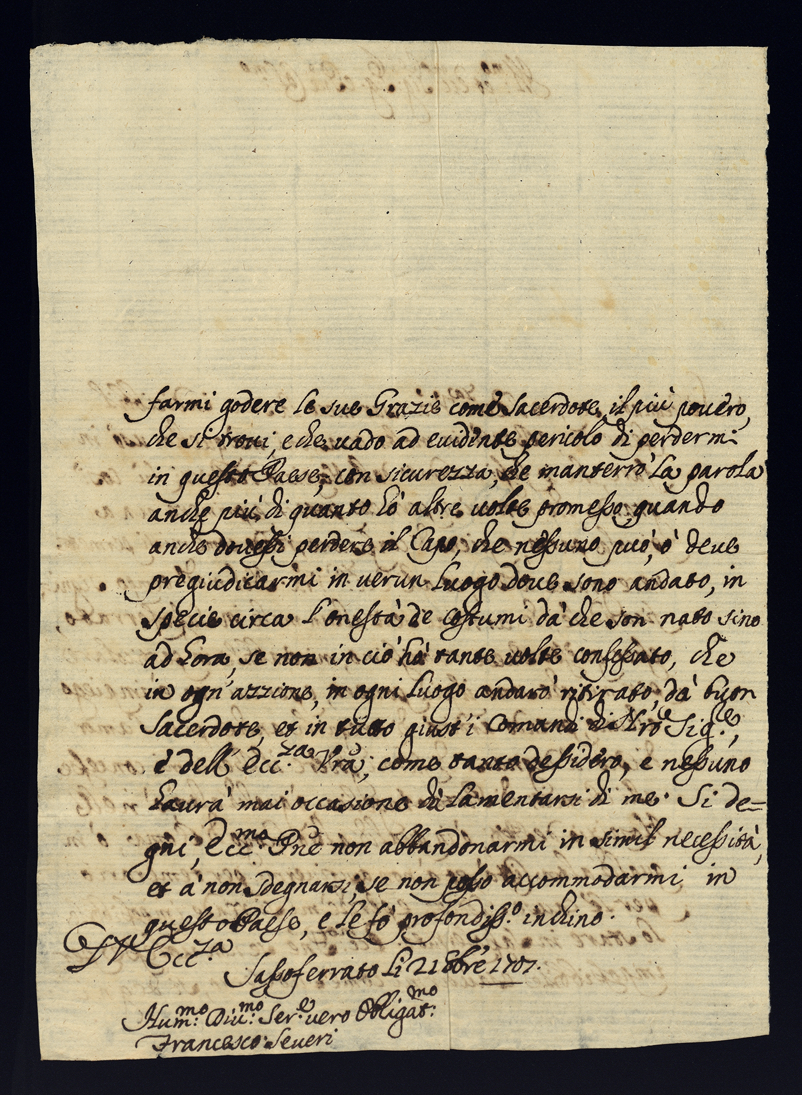 farmi godere le sue Grazie come Sacerdote, il più povero,
che si trovi, e che vado ad evidente pericolo di perdermi
in questo Paese, con sicurezza, che manterrò la parola
anche più di quanto hò altre volte promesso, quando
anche dovessi perdere il Capo, che nessuno può, ò deve
pregiudicarmi in verun luogo dove sono andato, in
specie circa l'onestà de costumi dà che son nato sino
ad hora, se non in ciò hò tante volte confessato, che
in ogn'azzione, in ogni luogo andarò ritirato, dà buon
Sacerdote, et in tutto giust'i Comandi di Nrõ Sig.e,
è dell'Ecc.za Vrã, come tanto dessidero, e nessuno
haurà mai occasione di lamentarsi di me. Si de=
gni, Ecc.mo Pñe non abbandonarmi in simil necessità,
et à non sdegnarsi se non posso accommodarmi in
questo Paese, e le fò profondiss.o inchino.
Ecc.za
Sassoferrato li 21 8bre 1707.
Hum.mo Div.mo Ser.e vero Obligat.mo
Francesco Severi